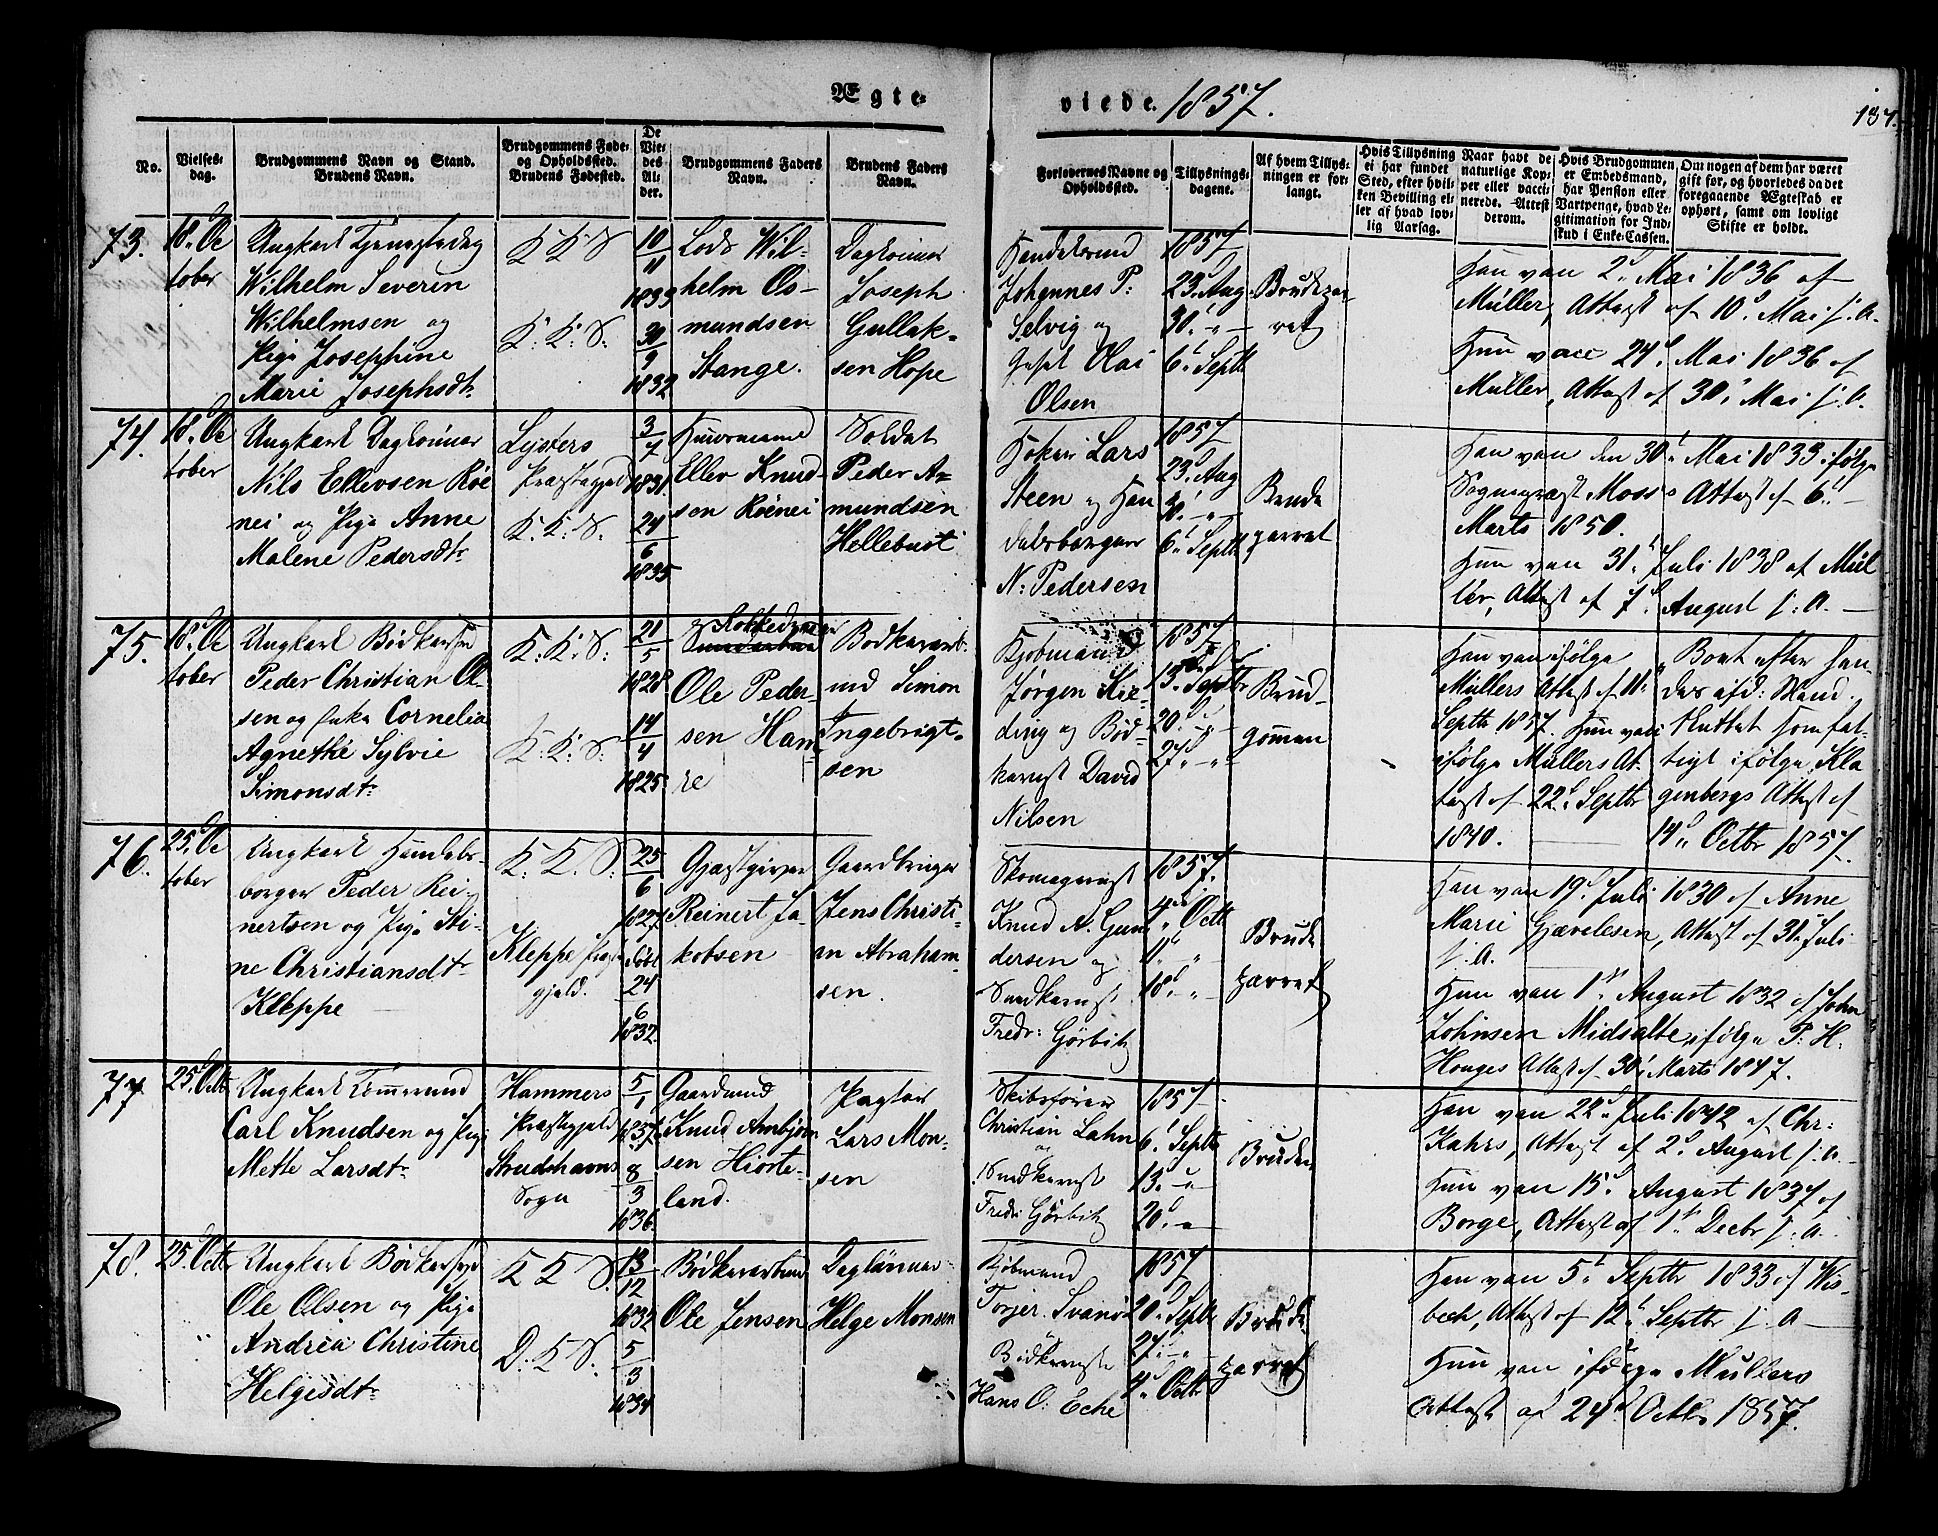 Ægte-
viede. 1857.
137.
No.
Vielses-
dag.
Brudgommens Navn og Stand.
Brudens Navn.
Brudgommens Føde-
og Opholdssted.
Brudens Fødested.
De
Vie-
des
Al-
der.
Brudgommens Faders
Navn.
Brudens Faders
Navn.
Forlovernes Navne og
Opholdssted.
Tillysnings-
dagene.
Af hvem Tillys-
ningen er for-
langt.
Hvis Tillysning
ei har fundet
Sted, efter hvil-
ken Bevilling el-
ler af hvad lov-
lig Aarsag.
Naar havt de
naturlige Kop-
per eller vacci-
nerede. Attest
derom.
Hvis Brudgommen
er Embedsmand,
har Pension eller
Vartpenge, hvad Le-
gitimation for Ind-
skud i Enke-Cassen.
Om nogen af dem har været
gift før, og hvorledes da det
foregaaende Ægteskab er
ophørt, samt om lovligt
Skifte er holdt.
73.
18. Oc
tober
Ungkarl
Wilhelm Severin
Wilhelmsen og
Pige Josephine
Marie Josephsdtr
K K S
K: K: S.
10
11
1833
30
9
1832
Lods Wil-
helm Os-
mundsen
Stange.
Dagleiner
Joseph
Gullak-
sen Hope
Johannes P:
Selvig og
Olai
Olsen
1857
23. Aug.
30. " -
6. Septb
Brudepar
ret
Han vac. 2. Mai 1836 af
Müller, Attest af 10. Mai s. A.
Hun vacc 24. Mai 1836 af
Müller, Attest af 30. Mai s. A.
74.
18. Oc
tober
Ungkarl Dagleiner
Nils Ellevsen Röe
nei og Pige Anne
Malene Pedersdtr
Lysters
Præstegjeld
K: K: S.
3
7
1831.
24
6
1835
Huusmand
Ellev Knud
sen Röenei
Soldat
Peder A=
mundsen
Hellebust
Lars
Steen og Han
delsborger
N: Pedersen
1857
23. Aug
30. " -
6. Septb
Brude
parret
Han vac den 30. Mai 1833 ifølge
Sognepræst Moss's Attest af 6.
Marts 1850.
Hun vac 31. Juli 1838 af Mül
ler, Attest af 7. August s: A.
75.
18. Oc
tober
Ungkarl Bödkersvend
Peder Christian Ol-
sen og Enke Cornelia
Agnethe Sylvie
Simonsdtr
K: K: S:
K: K: S.
21
5
1828
14
4
1825
Ole Peder-
sen Han-
re
Bödkerarb.
Simon
Ingebrigt-
sen
Kjöbmand
Jörgen
og Böd-
kermest David
Nilsen
1857
13. Septbr
20. " -
27. " "
Brud-
gommen
Han vac ifølge
Müllers Attest af 11.
Septb 1857. Hun vac
ifølge Müllers At-
test af 22. Septbr
1840.
Boet efter hen-
des afd: Mand
tigt ifølge Kla
genbergs Attest af
14. Octbr 1857.
76.
25. Oc
tober
Ungkarl Handels-
borger Peder Rei-
nertsen og Pige Sti-
ne Christiansdtr
Kleppe
K. K. S.
Kleppe Præste
gjeld.
25
6
1827
24
6
1832.
Gjæstgiver
Reinert Ja
kobsen
Gaardbruger
Jens Christi-
an Abraham-
sen.
Skomagermest
Knud A. Gun
dersen og
Snedkermest
Fredr: Görbitz
1857.
4. Octb
11. "
18. "
Brude
parret
Han vac 19. Juli 1830 af Anne
Marie Gjævelesen, Attest af 31. Juli
s. A.
Hun vac 1. August 1832 af John
Johnsen Midsalte, ifølge P: H.
Houges Attest af 30. Marts 1847.
77
25. Octb
Ungkarl Tömmermd
Carl Knudsen og Pige
Mette Larsdtr
Hammers
Præstegjeld
Strudshavns
Sogn
5
1
1837
8
3
1836
Gaardmand
Knud Ambjörn
sen Hiorte-
land.
Lars Mon-
sen
Skibsförer
Christian Lahn
og
Snedkermest
Fredr Görbitz
1857
6. Septb
13. "
20. "
Bruden
Han vac 22. Juli 1842 af Chr-
Kahrs, Attest af 2. August s. A.
Hun vac 15. August 1837 af
Borge, Attest af 1. Decbr s. A.
78.
25. Octb
Ungkarl Bödkersvend
Ole Olsen og Pige
Andrea Christine
Helgesdtr
K K S.
D. K S.
13
12
1832
5
3
1834
Bödkersvend
Ole Jensen
Daglönner
Helge Monsen
Kjöbmand
Torjer Svanöe
Bödkermest
Hans O. Eche
1857
20. Septb
27. " -
4. Octb
Brude
parret
Han vac 5. Septbr 1833 af Wis-
bech, Attest af 12. Septbr s. A.
Hun vac ifölge Müllers
Attest af 24. Octbr 1857.